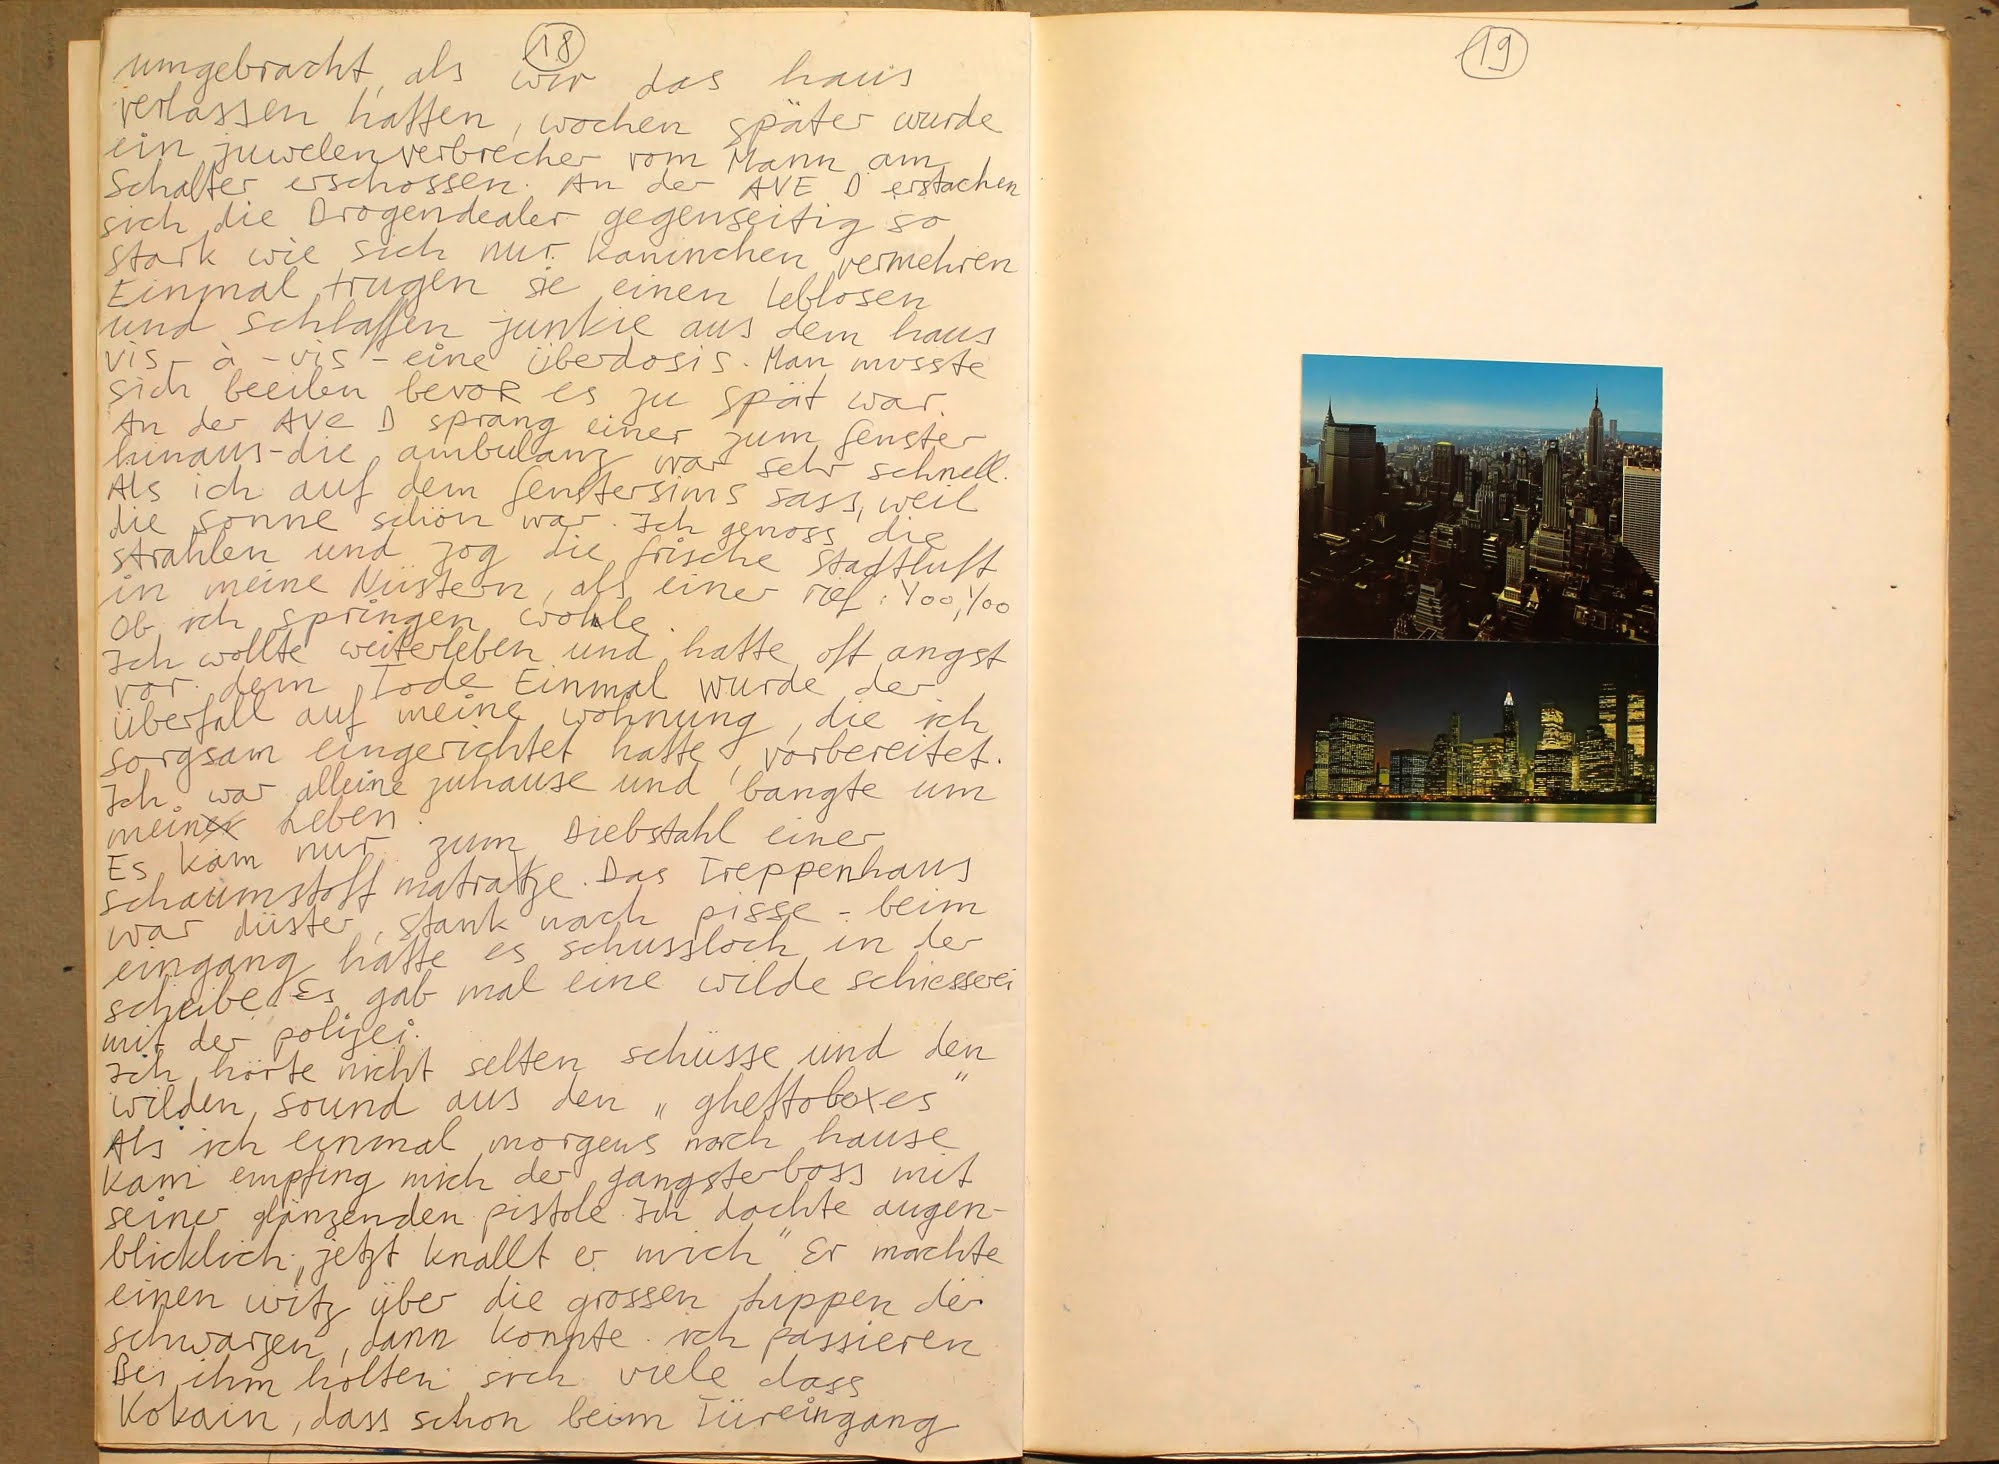 18
umgebracht, als wir das haus
verlassen hatten, wochen später wurde
ein juwelenverbrecher vom Mann am
Schalter erschossen. An der AVE D erstachen
sich die Drogendealer gegenseitig so
stark wie sich nur kaninchen vermehren
Einmal trugen sie einen leblosen
und schlaffen junkie aus dem haus
vis-à-vis - eine überdosis. Man musste
sich beeilen bevor es zu spät war.
An der AVE D sprang einer zum fenster
hinaus-die ambulanz war sehr schnell.
Als ich auf dem fenstersims sass, weil
die sonne schön war. Ich genoss die
strahlen und zog die frische Stadtluft
in meine Nüstern, als einer rief: Yoo, Yoo
Ob ich springen wolle.
Ich wollte weiterleben und hatte oft angst
vor dem Tode Einmal wurde der
überfall auf meine wohnung, die ich
sorgsam eingerichtet hatte, vorbereitet.
Ich war alleine zuhause und bangte um
mein Leben.
Es kam nur zum Diebstahl einer
schaumstoffmatratze. Das Treppenhaus
war düster, stank nach pisse - beim
eingang hatte es schussloch in der
scheibe. Es gab mal eine wilde schiesserei
mit der polizei.
Ich hörte nicht selten schüsse und den
wilden sound aus den „ghettoboxes"
Als ich einmal morgens nach hause
kam empfing mich der gangsterboss mit
seiner glänzenden pistole. Ich dachte augen-
blicklich „jetzt knallt er mich" Er machte
einen witz über die grossen luppen der
schwarzen, dann konnte ich passieren
Bei ihm holten sich viele dass
Kokain, dass schon beim Türeingang
19